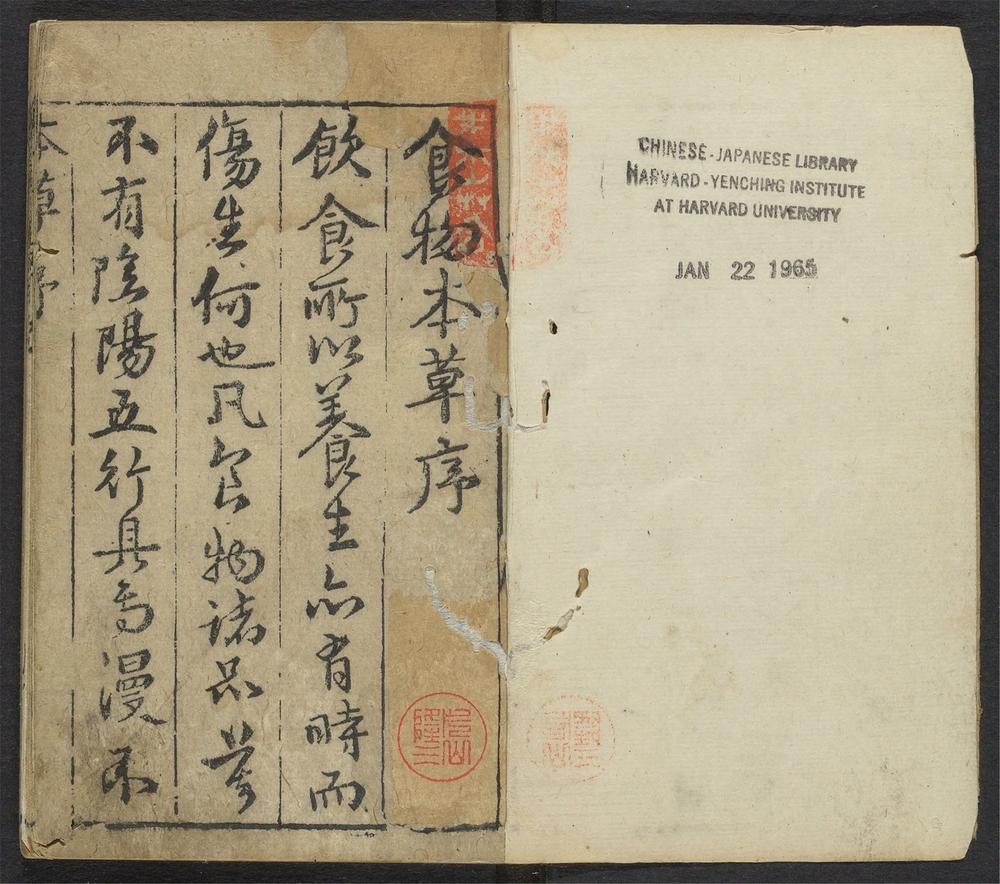 CHINESE-JAPANESE LIBRARY
HARVARD-YENCHING INSTITUTE
AT HARVARD UNIVERSITY
JAN 22 1965
食物本草序
飲食所以養生亦有時而
傷生何也凡食物諸品莫
不有陰陽五行具焉漫不
本草序